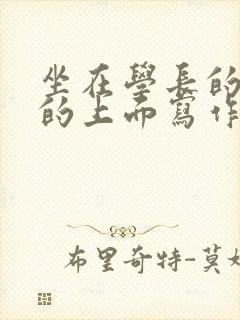 坐在學長的
的上面寫作
布里奇特-莫